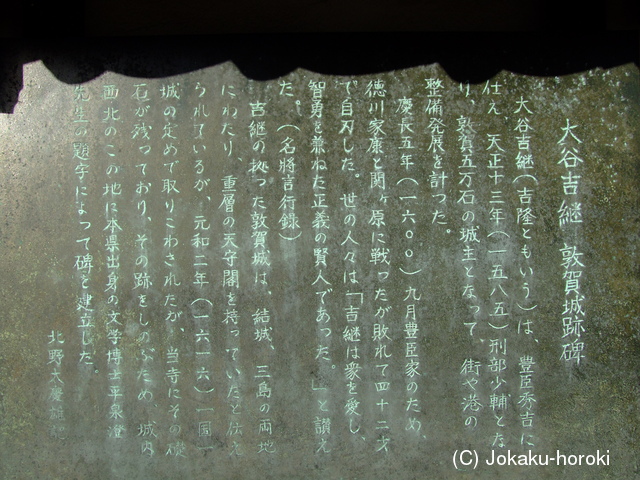 大谷吉継 敦賀城跡碑
大谷吉継(吉隆ともいう)は、豊臣秀吉に
仕え、天正十三年(一五八五)刑部少輔とな
り、敦賀五万石の城主となって、街や港の
整備発展を計った。
慶長五年(一六〇〇)九月豊臣家のため、
徳川家康と関ヶ原に戦ったが敗れて四十二才
で自刃した。世の人々は「吉継は衆を愛し、
智勇を兼ねた正義の賢人であった。」と讃え
た。(名將言行録)
吉継の拠った敦賀城は、結城、三島の両地
にわたり、重層の天守閣を持っていたと伝え
られているが、元和二年(一六一六)一国一
城の定めで取りこわされたが、当寺にその礎
石が残っており、その跡をしのぶため、城内
西北のこの地に本県出身の文学博士平泉澄
先生の題字によって碑を建立した。
北野大慶
(C) Jokaku-horoki